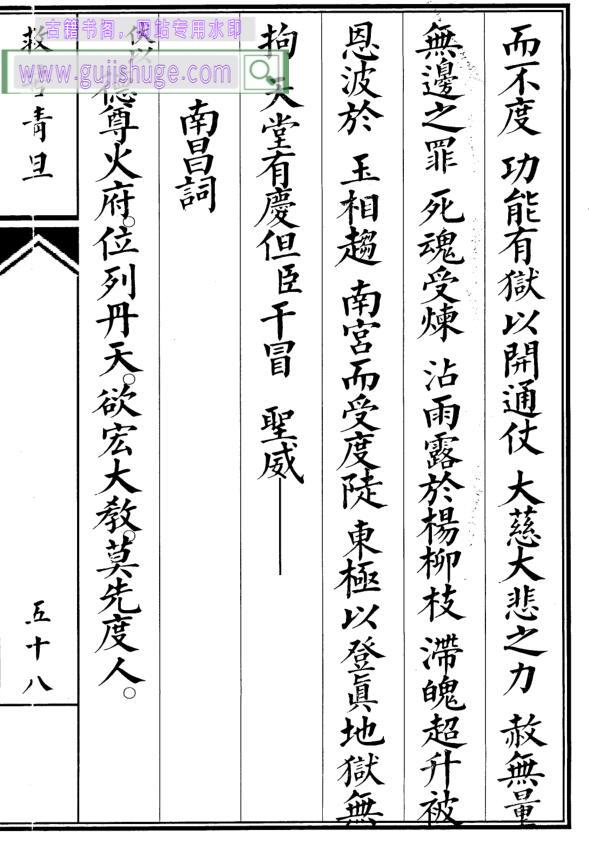 而不度 功能有獄以開通仗 大慈大悲之力 赦無量
無邊之罪 死魂受煉 沾雨露於楊柳枝 滯魄超升被
恩波於 玉相趨 南宮而受度陡 東極以登眞地獄無
拘 天堂有慶但臣干冒 聖威
南昌詞
德尊火府。位列丹天。欲宏大教。莫先度人。
青旦
五十八
古籍书阁，网站专用水印
www.gujishuge.com